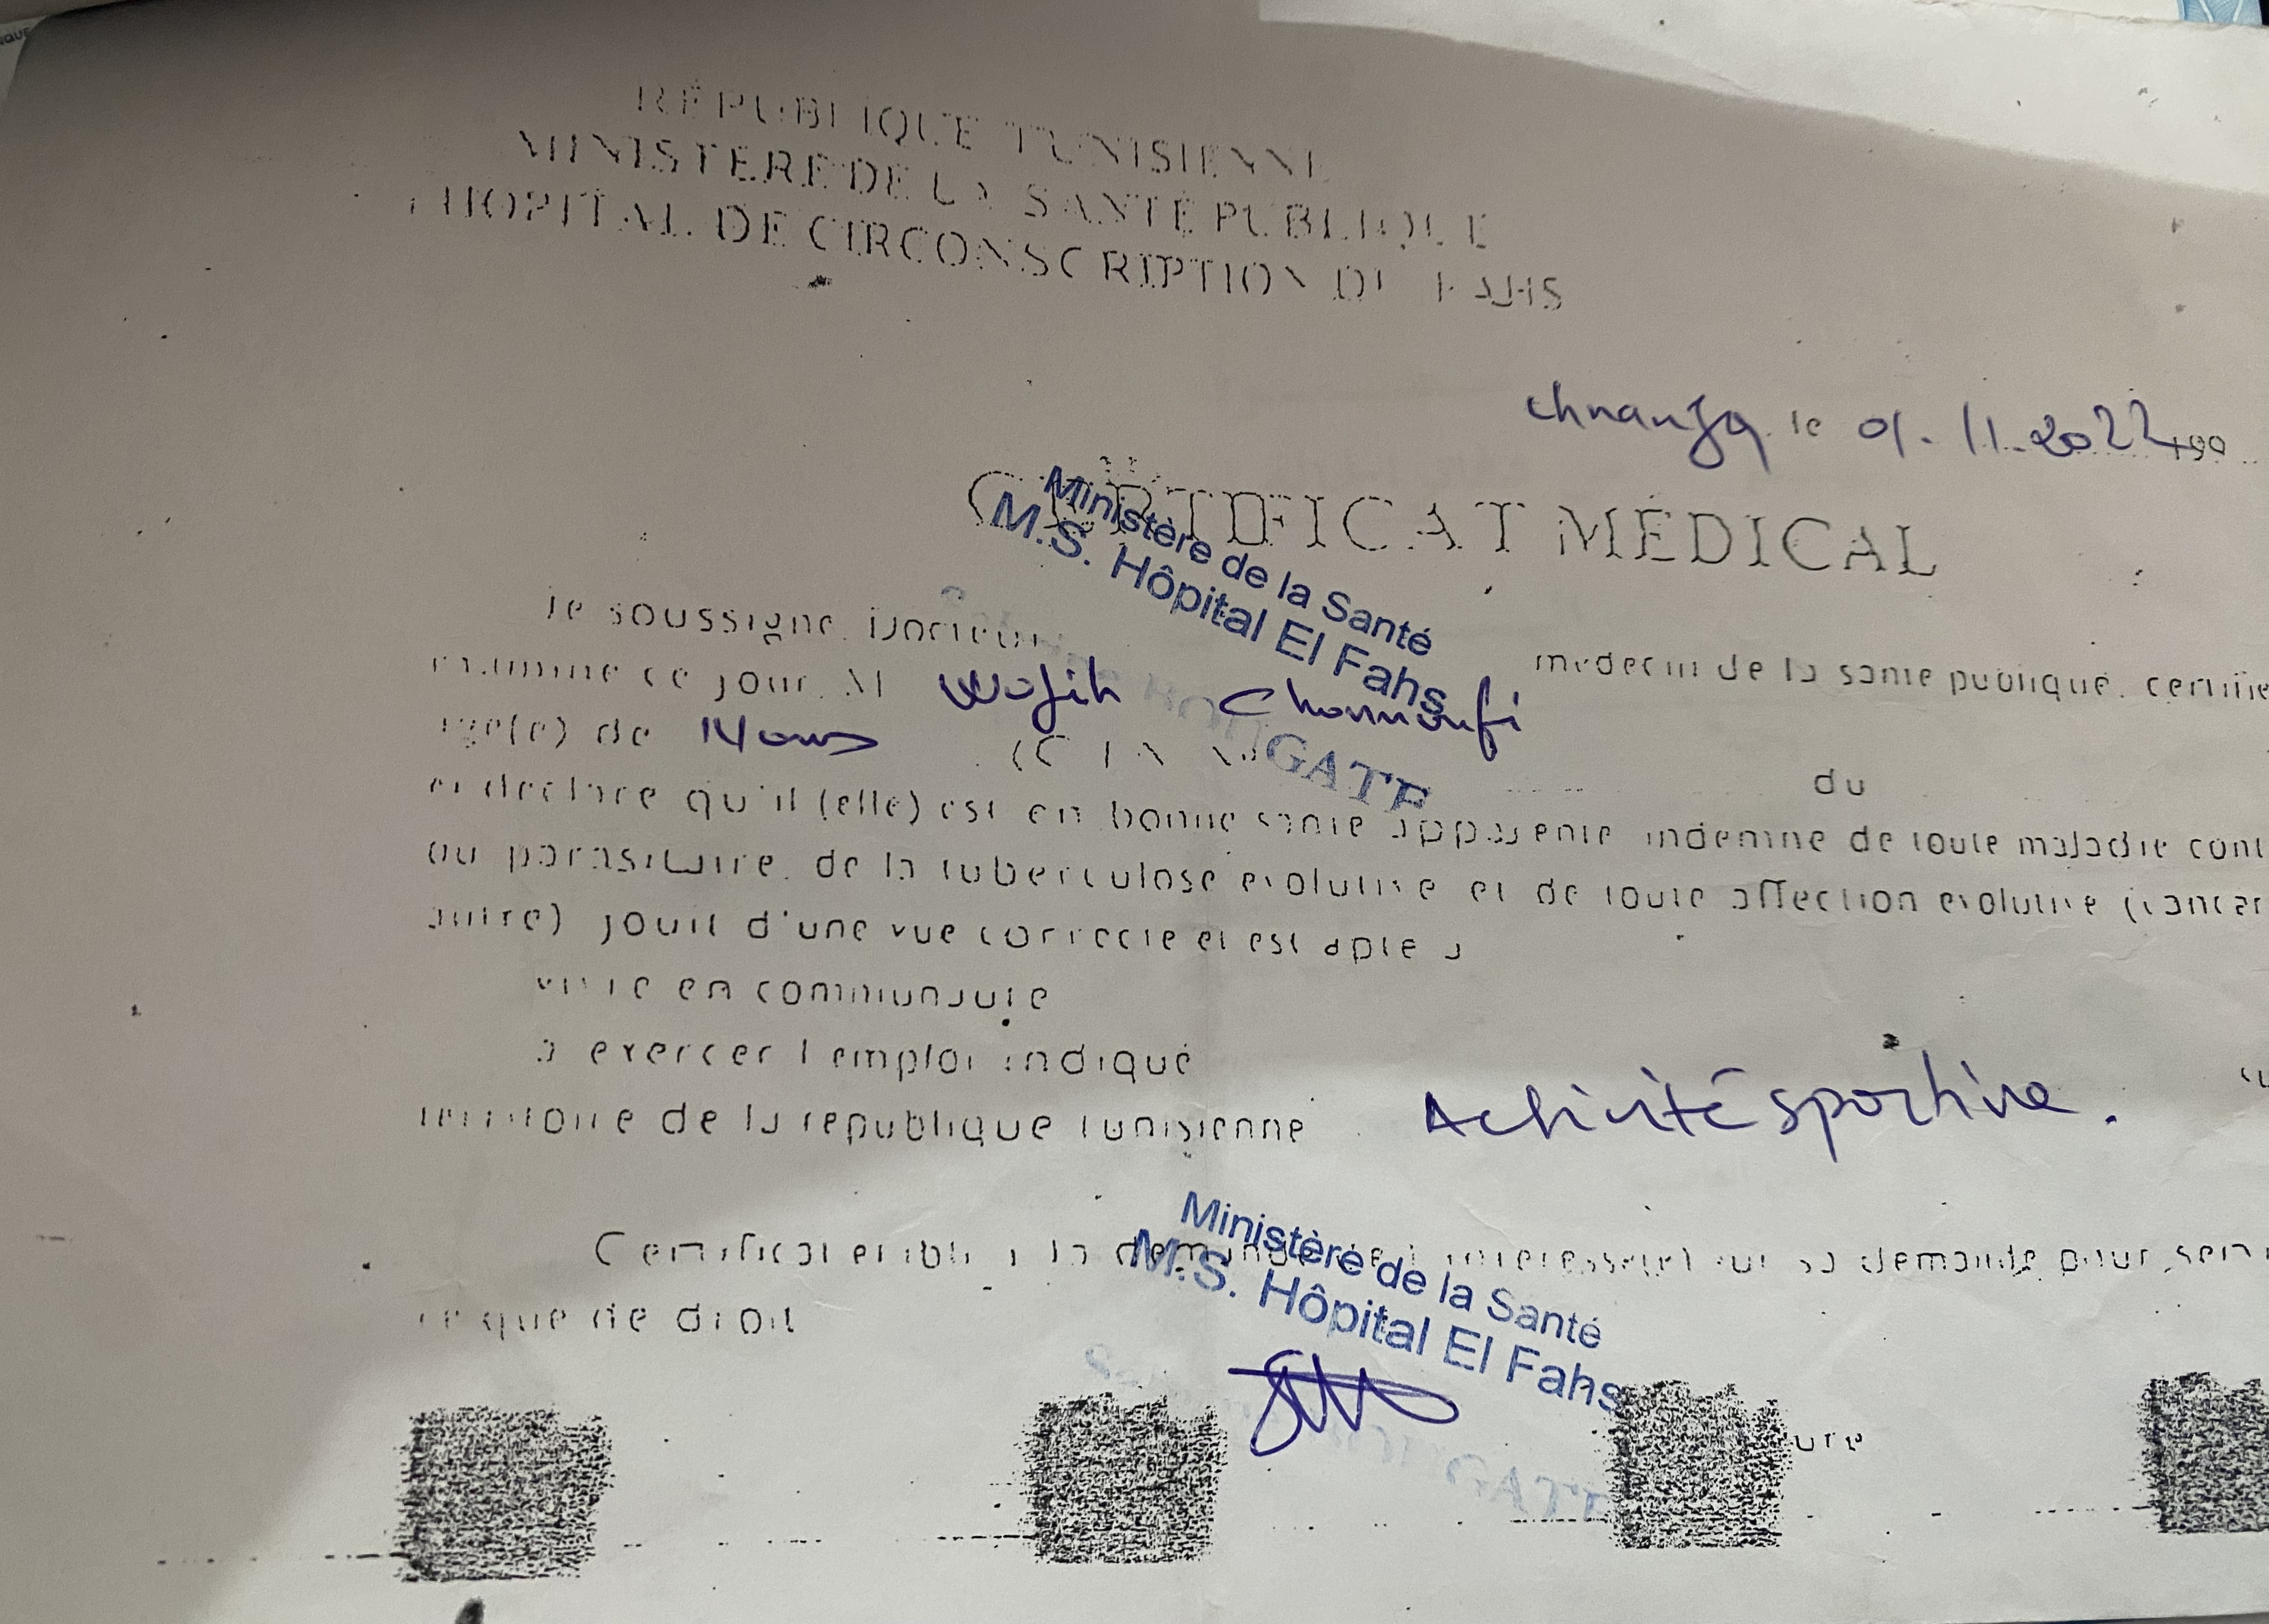 RÉPUBLIQUE TUNISIENNE
MINISTERE DE LA SANTE PUBLIQUE
HOPITAL DE CIRCONSCRIPTION DU FAHS
le 01.11.2022 199
CERTIFICAT MÉDICAL
Ministère de la Santé
M.S. Hôpital El Fahs
Je soussigné Docteur
médecin de la santé publique, certifie
examiné ce jour M Wajih
âgé(e) de 14 ans (C I N N° GATE
du
et déclare qu'il (elle) est en bonne santé apparente indemne de toute maladie cont
ou parasitaire, de la tuberculose évolutive et de toute affection évolutive (cancer
autre) jouit d'une vue correcte et est apte à
vivre en communauté
à exercer l'emploi indiqué
territoire de la république tunisienne Activité sportive.
Certificat établi à la demande de l'intéressé(e) sur sa demande pour servi
ce que de droit
Ministère de la Santé
M.S. Hôpital El Fahs
GATE
ure